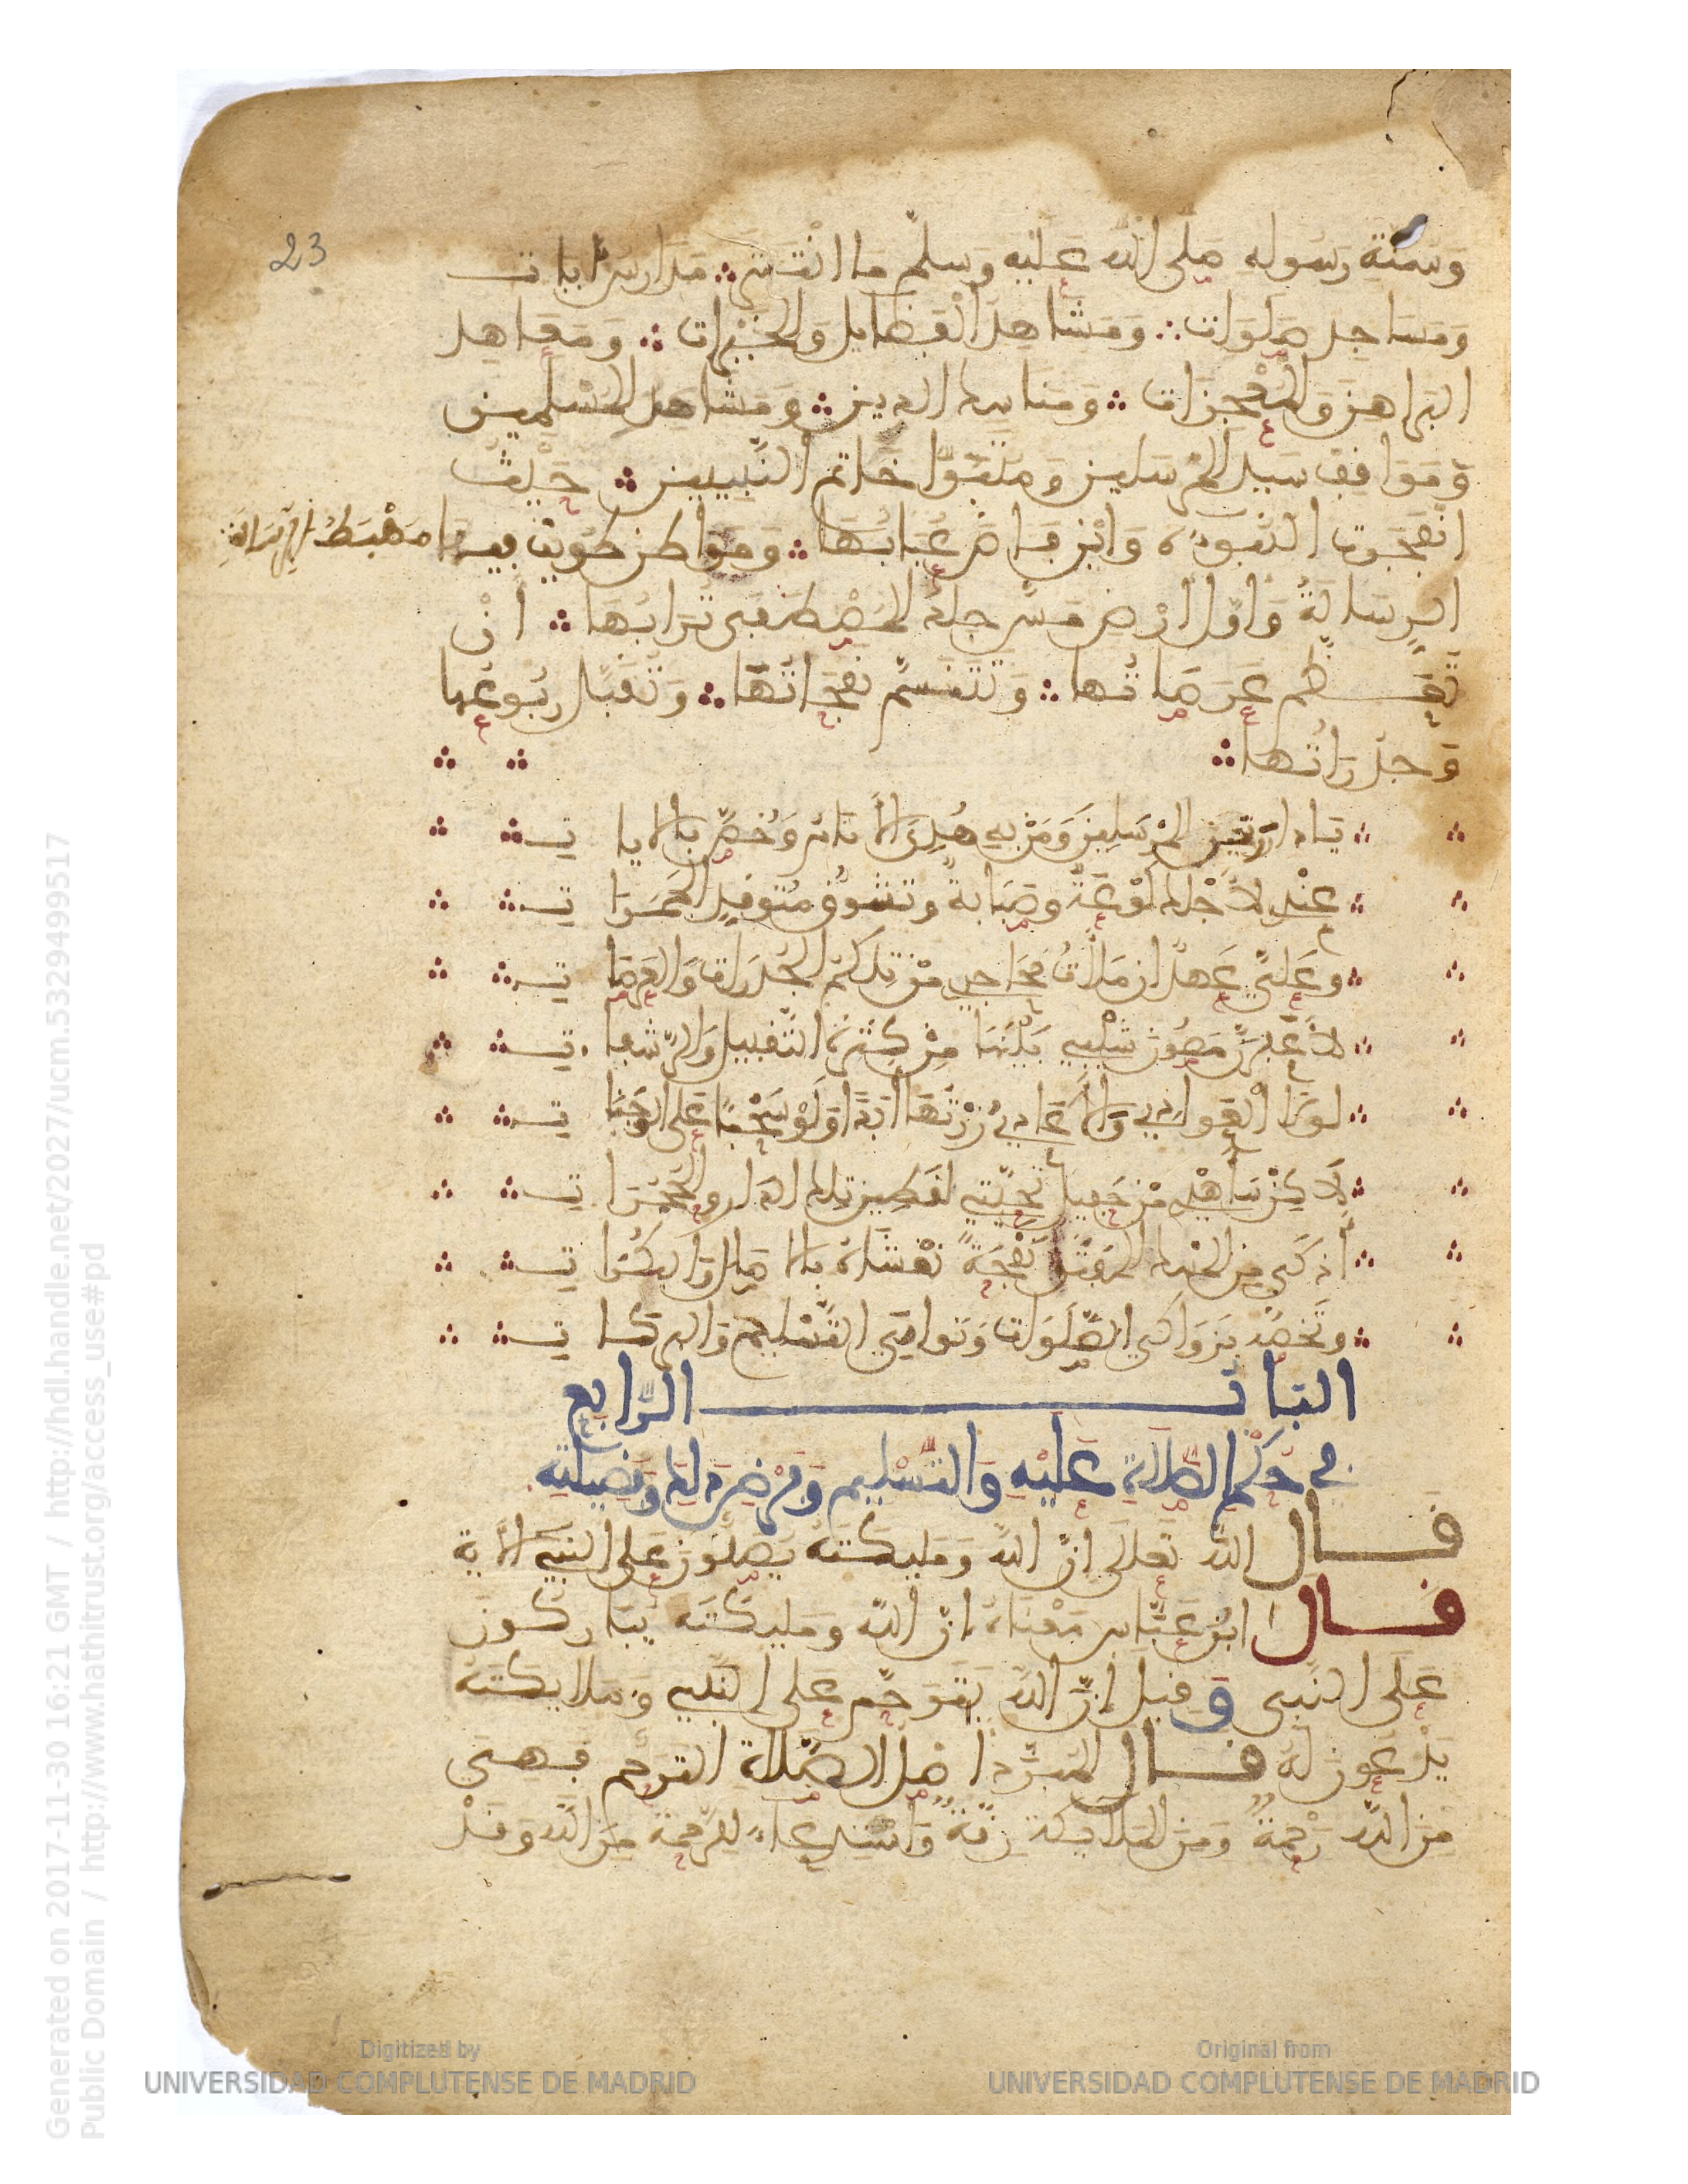 23
وَسُنَّةِ رَسُوله صلى اللّه عَليْه وَسلّم مَا انْتَشَرَ ∴ مَدَارس ايات
ومَسَاجد صَلَوَات ∴ وَمَشَاهدُ الْفَضايل وَالخيْرات ∴ وَمَعَاهد
البَراهن وَالمُعْجزَات ∴ وَمنَاسك الدين ∴ ومَشَاعر المُسْلمين
وَمَوَاقف سَيد المُرْسَلين وَمتَبَوَّا خَاتم النَّبيين ∴ حَيْثُ
انْفَجَرت النّبوءة وَايْن فَاضَ عُبَابُهَا ∴ وَمَواطن طُويت فيها
مَهْبَطُ
الرسَالةُ وَاوّل ارْض مَسّ جلدَ المُصْطَفى تُرَابُهَا ∴ انْ
تُعَظّم عَرَصَاتُها ∴ وَتُتَنَسَّم نفحَاتُهَا ∴ وَتُقَبَّل رُبُوعُها
وَجدَرَاتُهَا ∴
يَا دار خَيْر المُرْسَلينَ وَمَنْ به هُديَ الأَنَامُ وَخُصَّ بالايا تِ
عنْدي لأَجْلك لَوْعَةٌ وصَبَابةٌ وتشوُّقٌ مُتوقدُ الجَمَرَا تِ
وعَليَّ عَهدٌ ان مَلأْتُ مَحَاجري منْ تلكم الجُدرَات وَالعَرصَا تِ
لأُعَفرَنَّ مَصُونَ شَيْبي بَيْنَهَا منْ كثْرة التَّقْبيل وَالرَّشفا تِ
لولَا الْعَوادي وَالأَعَادي زُرْتُهَا ابَدًا وَلَوْ سَحْبًا عَلى الوَجَنَا تِ
لَاكنْ سَأهْدي منْ حَفيل تَحيَّتي لقَطين تلك الدار والحُجُرَا تِ
أذكى من المسْك المُفَتَّق نَفْحَةً تغْشَاهُ بالاصَال وَالبكُرَا تِ
وتَخصّه بزَواكي الصَّلَوَات وَنَوامي التَّسْليم وَالبركا تِ
البَابُ الرّابع
في حُكْم الصَّلَاة عَليْه وَالتَّسْليم وَفرْض ذلك وَفضيلته
قال اللّه تعَالَى انّ اللّهَ وَمَليكتَه يُصلّونَ عَلى النّبيّ الآية
قال ابْنُ عَبَّاس مَعْنَاهُ انّ اللّه ومَليكتَه يُبَاركونَ
عَلى النّبي وَقيلَ إنّ اللّهَ يتَرَحّم عَلى النَّبي وَمَلايكتَه
يَدْعونَ لهُ قال المُبَرّد اصْل الصّلاة التّرَحّم فهيَ
منَ اللّه رَحْمَةٌ وَمنَ المَلَايكة رقّةٌ وَاسْتدعاء للرّحمة منَ اللّه وَقدْ
Generated on 2017-11-30 16:21 GMT / http://hdl.handle.net/2027/ucm.5329499517
Public Domain / http://www.hathitrust.org/access_use#pd
Digitized by
UNIVERSIDAD COMPLUTENSE DE MADRID
Original from
UNIVERSIDAD COMPLUTENSE DE MADRID